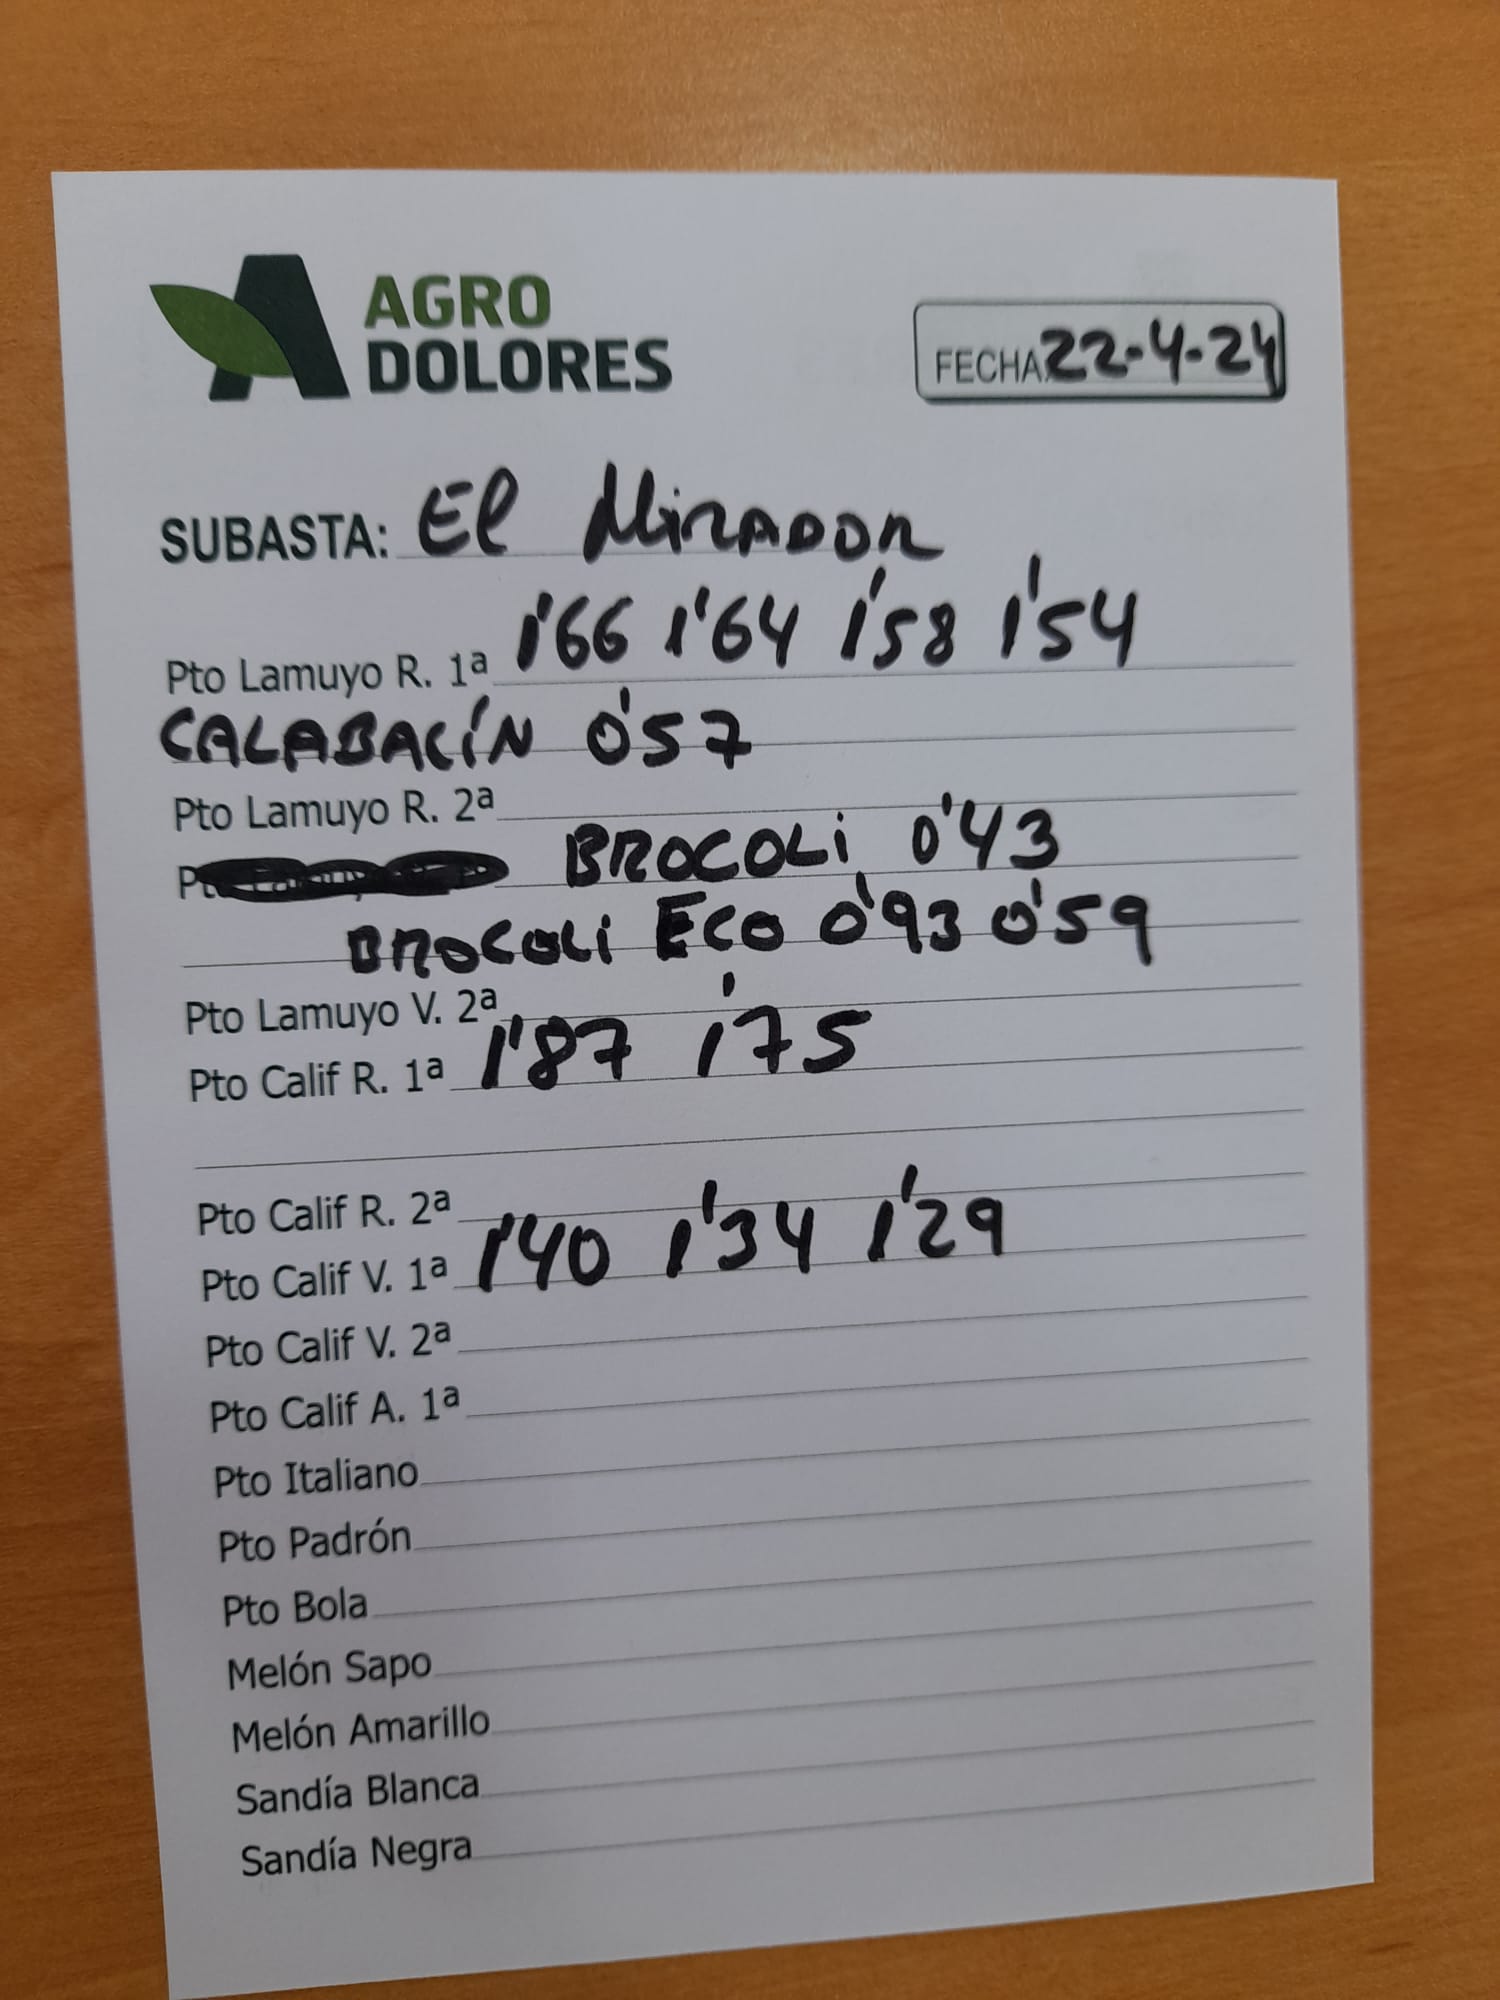 AGRO
DOLORES
FECHA 22-4-24
SUBASTA: El Mirador
Pto Lamuyo R. 1ª 1'66 1'64 1'58 1'54
CALABACÍN 0'57
Pto Lamuyo R. 2ª
BROCOLi 0'43
BROCOLi ECO 0'93 0'59
Pto Lamuyo V. 2ª
Pto Calif R. 1ª 1'87 1'75
Pto Calif R. 2ª
Pto Calif V. 1ª 1'40 1'34 1'29
Pto Calif V. 2ª
Pto Calif A. 1ª
Pto Italiano
Pto Padrón
Pto Bola
Melón Sapo
Melón Amarillo
Sandía Blanca
Sandía Negra